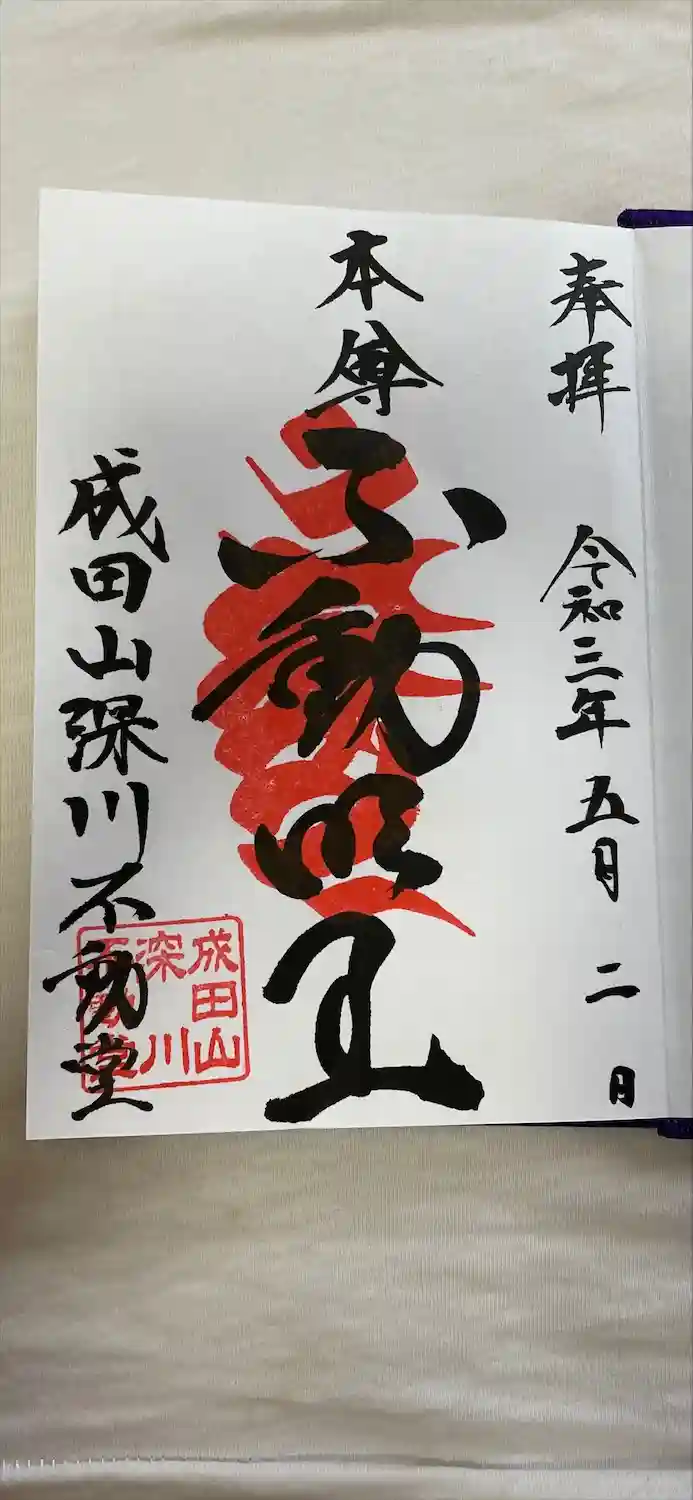 奉拝 令和三年 五月 二日
本尊 不動明王
成田山深川不動堂
成田山
深川
不動堂